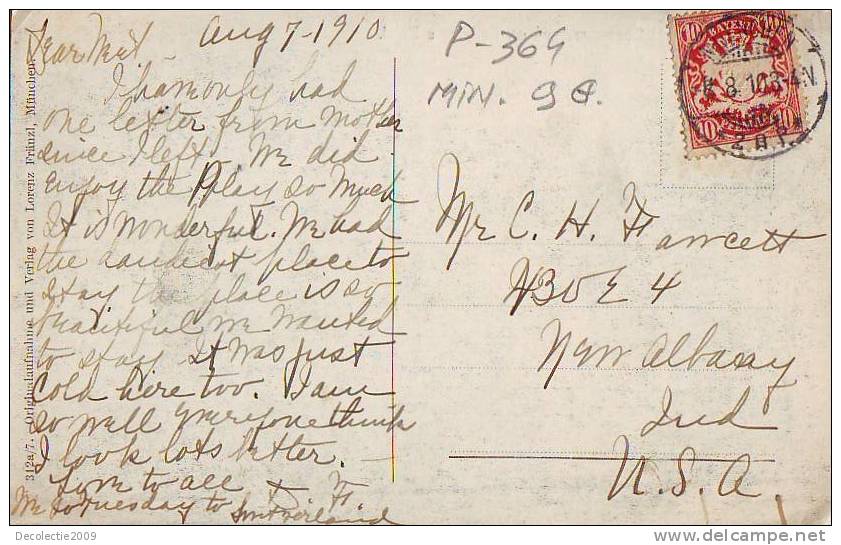 Aug 7-1910
Dear
I have only had
one letter from Mother
since I left. We did
enjoy the Play so much
It is wonderful. We had
the place to
stay the place is so
beautiful we wanted
to stay It was just
cold here too. I am
so well everyone think
I look lots better.
Love to all
We go Tuesday to Switzerland
P-369
MIN.
BAYERN
10
10 10
Mr C. H. Fawcett
430 E 4
New Albany
Ind
U.S.A.
312a/7. Originalaufnahme und Verlag von Lorenz Fränzl, München.
Decolectie2009
delcampe.net